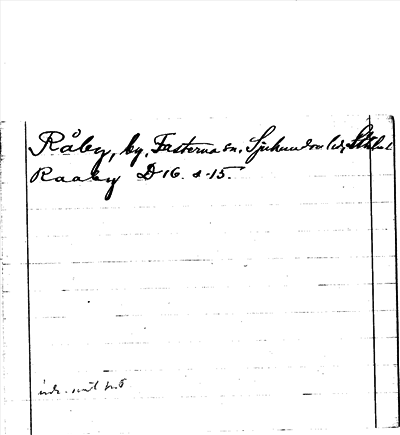 Råby, by, Fasterna sn, Sjuhundra hd, Sthlm l
Raaby D 16. s. 15.